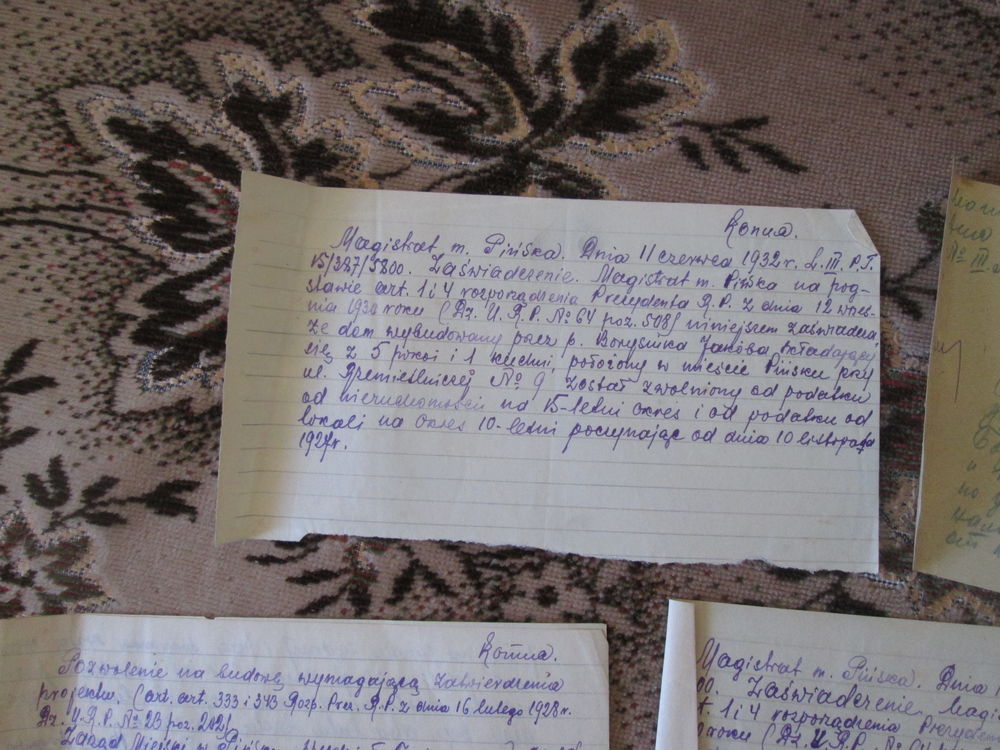 Копия.
Magistrat m. Pińska. Dnia 11 czerwca 1932 r. L. III. P.T.
15/387/5800. Zaświadczenie. Magistrat m. Pińska na pog-
stawie art. 1 i 4 rozporządzenia Prezydenta R.P. z dnia 12 wrześ-
nia 1930 roku (Dz. U. R. P. № 64 poz. 508) niniejszem zaświadcza,
że dom wybudowany przez p. Borysnika Jakóba składający
się z 5 pokoi i 1 kuchni, położony w mieście Pińsku przy
ul. Rzemieślniczej № 9 został zwolniony od podatku
od nieruchomości na 15-letni okres i od podatku od
lokali na okres 10-letni poczynając od dnia 10 listopada
1927 r.
Копия.
Pozwolenie na budowę wymagającą zatwierdzenia
projektu. (art. art. 333 i 343 Rozp. Prez. R.P. z dnia 16 lutego 1928 r.
Dz. U.R.P. № 23 poz. 202).
Magistrat m. Pińska. Dnia
00. Zaświadczenie. Magi
t. 1 i 4 rozporządzenia Prezydent
roku (Dz. U. R. P.
№ III